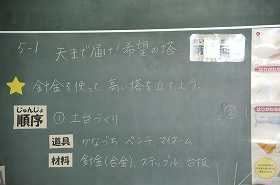 5-1 天まで届け!希望の塔
針金を使って高い塔を立てよう。
じゅんじょ
順序 ① 土台づくり ②
道具 かなづち ペンチ
材料 針金(合金)、ステップル、台板